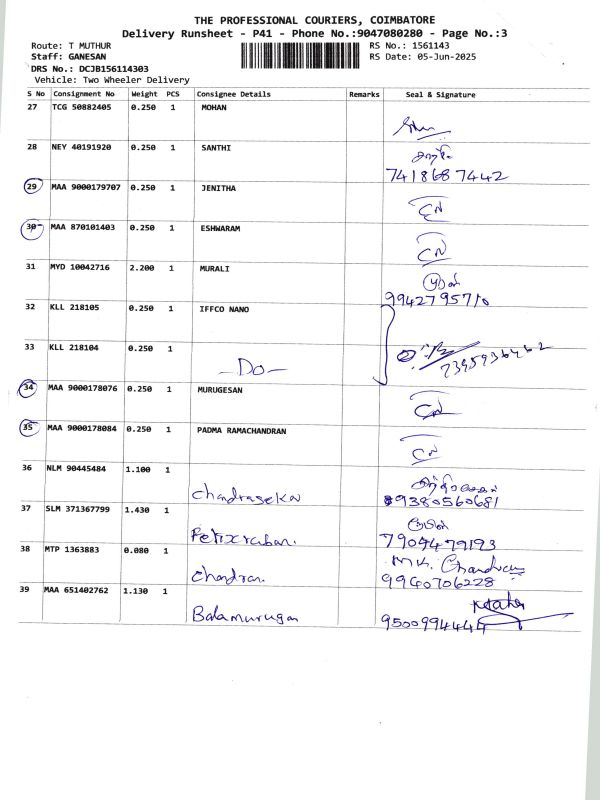 THE PROFESSIONAL COURIERS, COIMBATORE
Delivery Runsheet - P41 - Phone No.:9047080280 - Page No.:3
Route: T MUTHUR
RS No.: 1561143
Staff: GANESAN
RS Date: 05-Jun-2025
DRS No.: DCJB156114303
Vehicle: Two Wheeler Delivery
S No Consignment No Weight PCS Consignee Details Remarks Seal & Signature
27 TCG 50882405 0.250 1 MOHAN
28 NEY 40191920 0.250 1 SANTHI
7418687442
29 MAA 9000179707 0.250 1 JENITHA
30 MAA 870101403 0.250 1 ESHWARAM
31 MYD 10042716 2.200 1 MURALI
9942795710
32 KLL 218105 0.250 1 IFFCO NANO
33 KLL 218104 0.250 1
-DO-
34 MAA 9000178076 0.250 1 MURUGESAN
35 MAA 9000178084 0.250 1 PADMA RAMACHANDRAN
36 NLM 90445484 1.100 1
Chandrasekar
9380560681
37 SLM 371367799 1.430 1
7904479193
38 MTP 1363883 0.080 1
Chandran
M.K. Chandran
9940706228
39 MAA 651402762 1.130 1
Balamurugan
9500994444